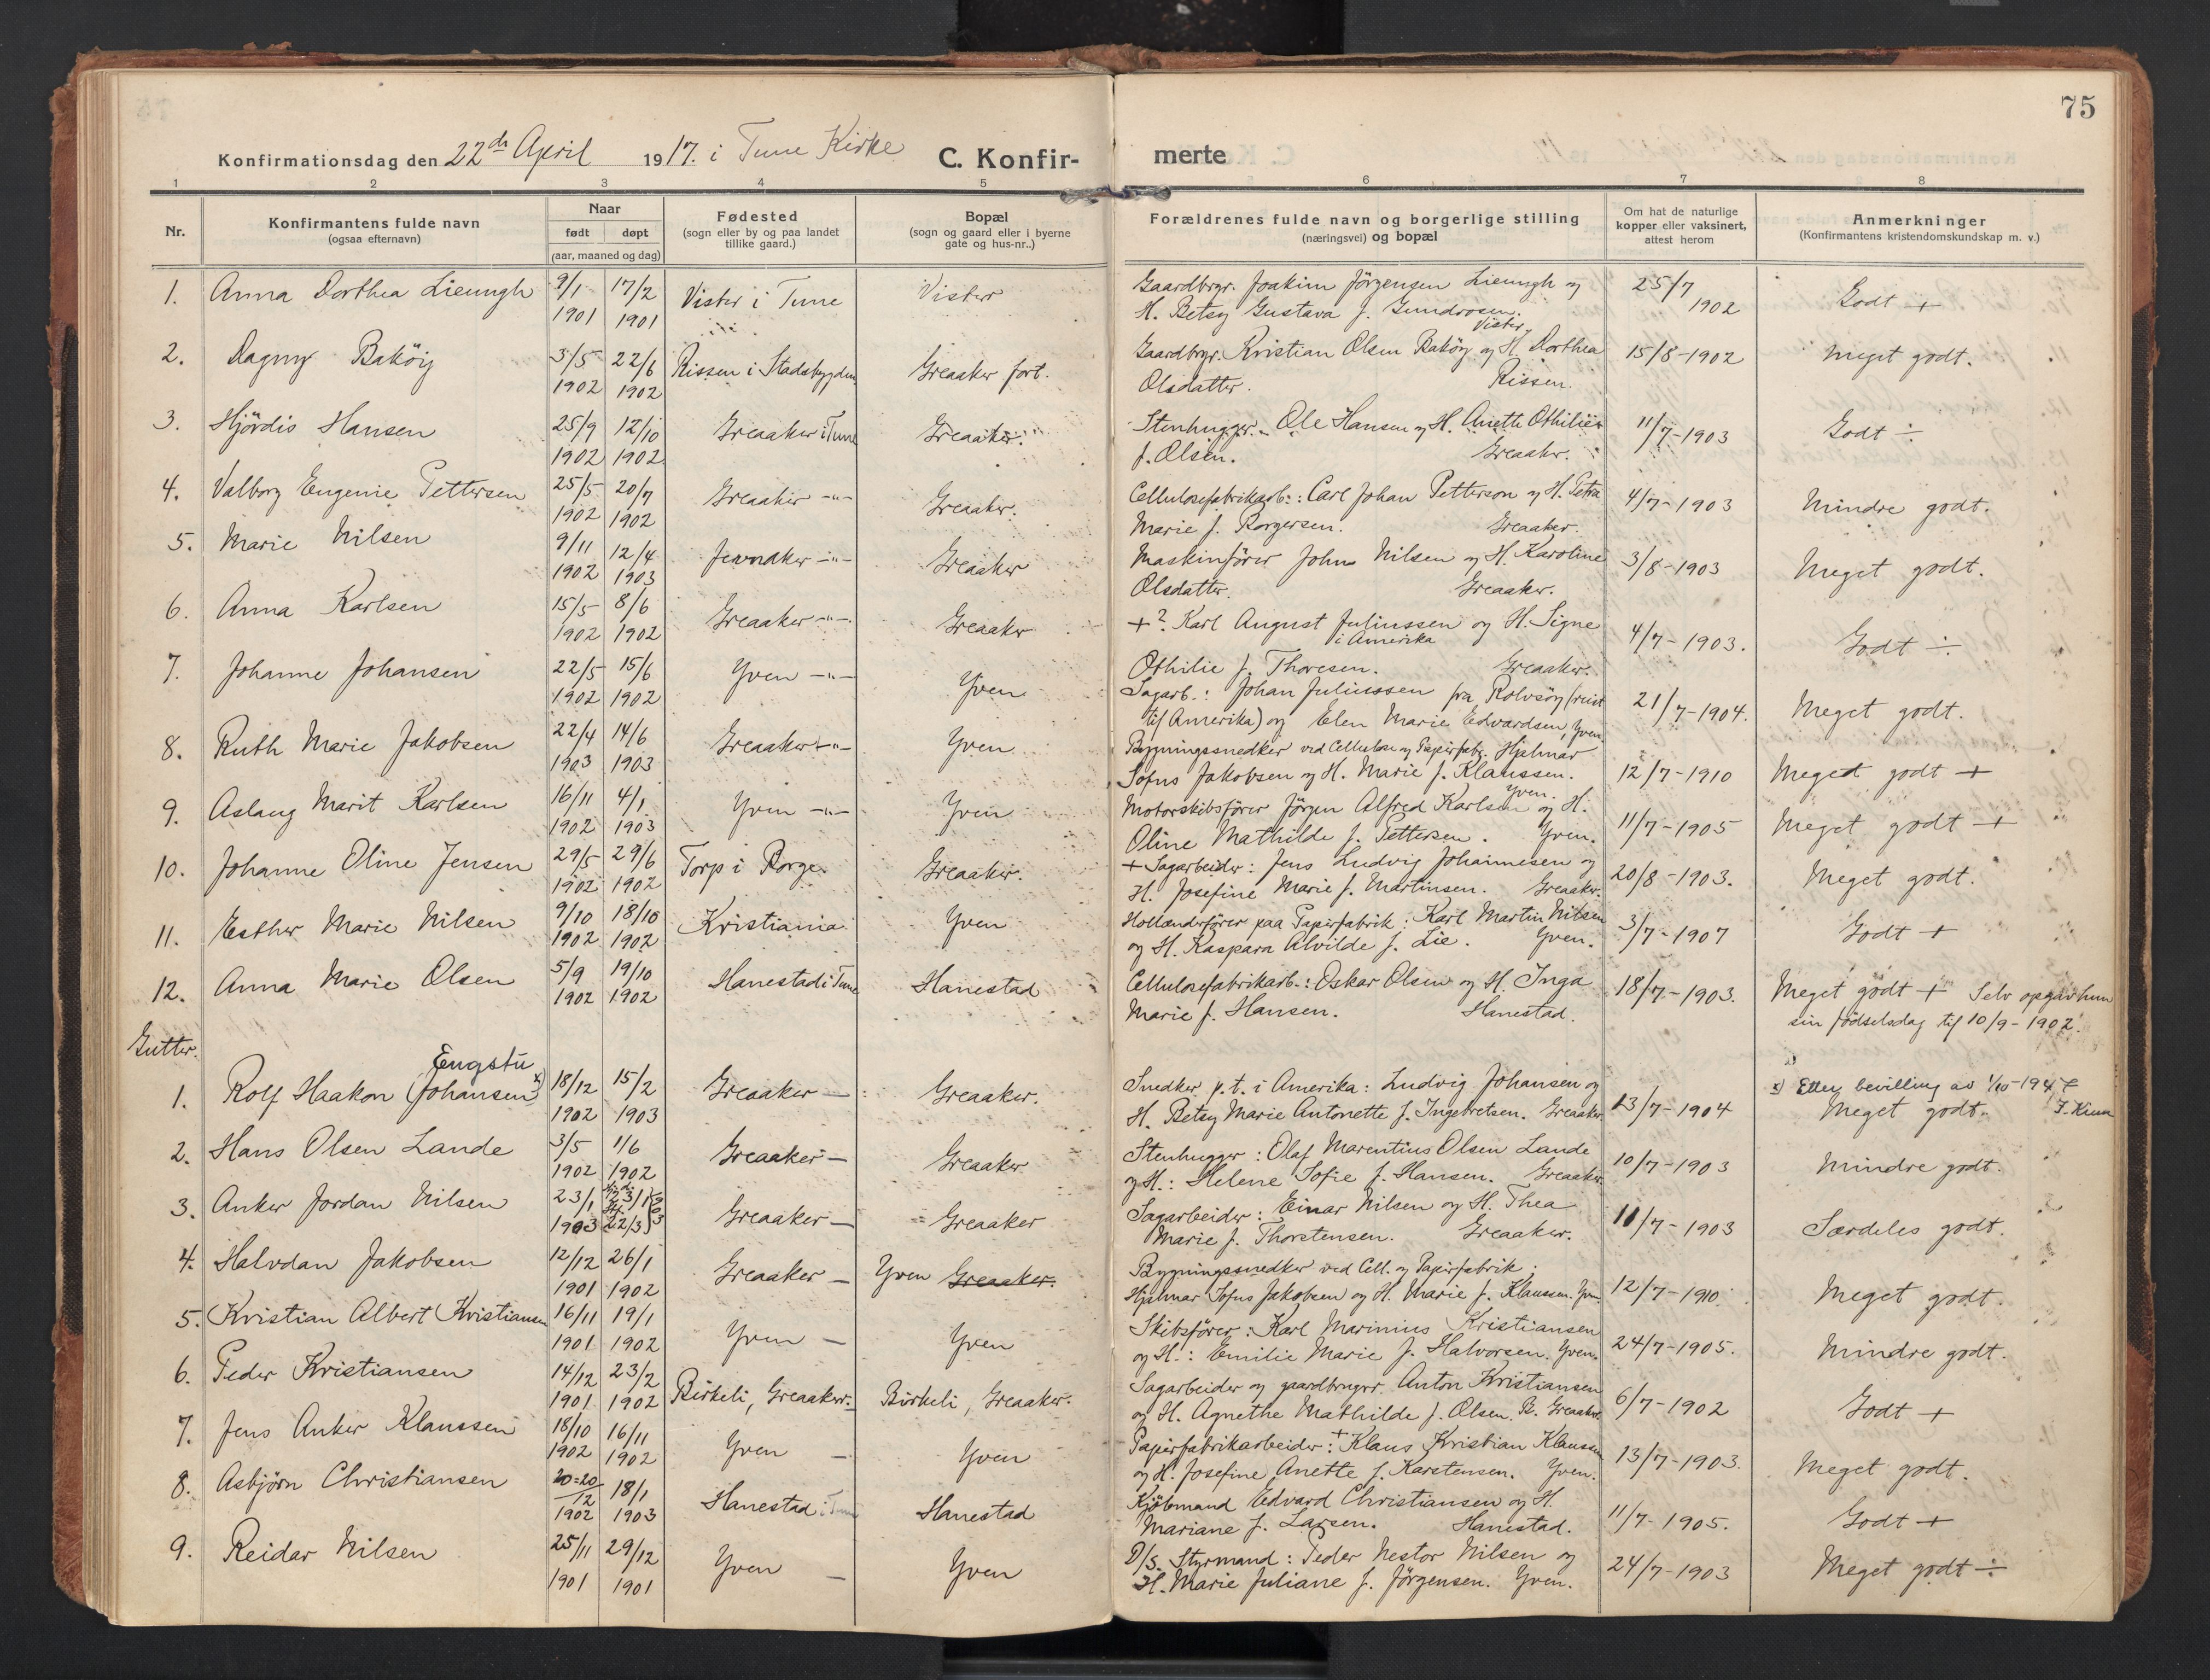 75
Konfirmationsdag den 22de April 1917. i Tune Kirke C. Konfir- merte
1 2 3 4 5 6 7 8
Nr.
Konfirmantens fulde navn
(ogsaa efternavn)
Naar
født døpt
(aar, maaned og dag)
Fødested
(sogn eller by og paa landet
tillike gaard.)
Bopæl
(sogn og gaard eller i byerne
gate og hus-nr..)
Forældrenes fulde navn og borgerlige stilling
(næringsvei) og bopæl
Om hat de naturlige
kopper eller vaksinert,
attest herom
Anmerkninger
(Konfirmantens kristendomskundskap m. v.)
1. Anna Dorthea Lieungh 9/1 1901 17/2 1901 Vister i Tune Vister Gaardbrgr. Joakim Jörgensen Lieungh og
H. Betsy Gustava f. Gundrosen. Vister. 25/7 1902 Godt +
2. Dagny Baköy 3/5 1902 22/6 1902 Rissen i Stadsbygden Greaaker fort. Gaardbrgr. Kristian Olsen Baköy og H. Dorthea
Olsdatter. Rissen. 15/8-1902 Meget godt.
3. Hjördis Hansen 25/9 1902 12/10 1902 Greaaker i Tune Greaaker. Stenhugger. Ole Hansen og H. Anette Othilie
f. Olsen. Greaaker. 11/7-1903 Godt ÷
4. Valborg Eugenie Pettersen 25/5 1902 20/7 1902 Greaaker -"- Greaaker. Cellulosefabrikarb.: Carl Johan Petterson og H. Petra
Marie f. Borgersen. Greaaker. 4/7-1903 Mindre godt.
5. Marie Nilsen 9/11 1902 12/4 1903 -"- Greaaker Maskinfører John Nilsen og H. Karoline
Olsdatter. Greaaker. 3/8-1903 Meget godt.
6. Anna Karlsen 15/5 1902 8/6 1902 Greaaker -"- Greaaker +? Karl August Juliussen og H. Signe
i Amerika
Othilie f. Thoresen. Greaaker. 4/7-1903. Godt ÷
7. Johanne Johansen 22/5 1902 15/6 1902 Yven -"- Yven Sagarb.: Johan Juliussen fra Rolvsöy (reist
til Amerika) og Elen Marie Edvardsen, Yven 21/7-1904. Meget godt.
8. Ruth Marie Jakobsen 22/4 1903 14/6 1903 Greaaker -"- Yven Bygningssnedker ved Cellulose og Papirfabr. Hjalmar
Sofus Jakobsen og H. Marie f. Klaussen. Yven. 12/7-1910 Meget godt +
9. Aslaug Marit Karlsen 16/11 1902 4/1 1903 Yven -"- Yven Motorskibsfører Jörgen Alfred Karlsen og H.
Oline Mathilde f. Pettersen. Yven. 11/7-1905 Meget godt +
10. Johanne Oline Jensen 29/5 1902 29/6 1902 Torp i Borge. Greaaker. + Sagarbeider: Jens Ludvig Johannesen og
H. Josefine Marie f. Martinsen. Greaaker. 20/8-1903. Meget godt.
11. Esther Marie Nilsen 9/10 1902 18/10 1902 Kristiania Yven Hollænderfører paa Papirfabrik: Karl Martin Nilsen
og H. Kaspara Alvilde f. Lie. Yven. 3/7-1907 Godt +
12. Anna Marie Olsen 5/9 1902 19/10 1902 Hanestad i Tune Hanestad Cellulosefabrikarb.: Oskar Olsen og H. Inga
Marie f. Hansen. Hanestad. 18/7-1903. Meget godt + Selv opgav hun
sin fødselsdag til 10/9-1902.
Gutter.
Engstu
1. Rolf Haakon (Johansen) x) 18/12 1902 15/2 1903 Greaaker — Greaaker. Snedker p.t. i Amerika: Ludvig Johansen og
H. Betsy Marie Antonette f. Ingebretsen. Greaaker 13/7-1904 x) Etter bevilling av 1/10-1947
Meget godt.
2. Hans Olsen Lande 3/5 1902 1/6 1902 Greaaker — Greaaker Stenhugger: Olaf Marentius Olsen Lande
og H.: Helene Sofie f. Hansen. Greaaker. 10/7-1903 Mindre godt.
3. Anker Jordan Nilsen 23/1 1903 23/1 22/3 1903 Greaaker — Greaaker Sagarbeider: Einar Nilsen og H. Thea
Marie f. Thorstensen. Greaaker. 11/7-1903 Særdeles godt.
4. Halvdan Jakobsen 12/12 1901 26/1 1902 Greaaker — Yven Greaaker. Bygningssnedker ved Cell. og Papirfabrik:
Hjalmar Sofus Jakobsen og H. Marie f. Klaussen. Yven. 12/7-1910 Meget godt.
5. Kristian Albert Kristiansen 16/11 1901 19/1 1902 Yven — Yven Skibsfører: Karl Marinius Kristiansen
og H.: Emilie Marie f. Halvorsen. Yven. 24/7-1905. Mindre godt.
6. Peder Kristiansen 14/12 1901 23/2 1902 Birkeli, Greaaker. Birkeli, Greaaker. Sagarbeider og gaardbruger. Anton Kristiansen
og H. Agnethe Mathilde f. Olsen. B. Greaaker. 6/7-1902 Godt +
7. Jens Anker Klaussen 18/10 1902 16/11 1902 Yven — Yven Papirfabrikarbeider: + Klaus Kristian Klaussen
og H. Josefine Anette f. Karstensen. Yven. 13/7-1903. Meget godt.
8. Asbjörn Christiansen 20=20/12 1902 18/1 1903 Hanestad i Tune Hanestad Kjöbmand Edvard Christiansen og H.
Mariane f. Larsen. Hanestad. 11/7-1905. Godt +
9. Reidar Nilsen 25/11 1901 29/12 1901 Yven — Yven D/S. Styrmand: Peder Nestor Nilsen og
H. Marie Juliane f. Jörgensen. Yven. 24/7-1903 Meget godt ÷